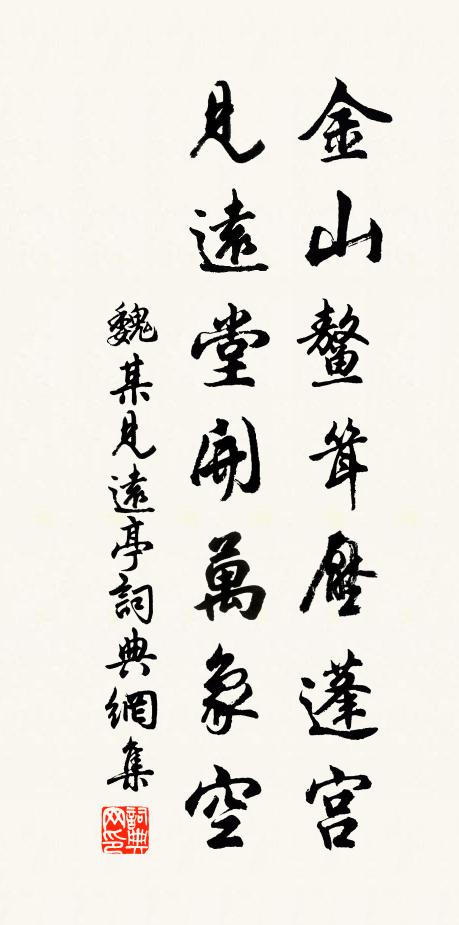 金山鼇耸壓蓬宫
見遠堂開萬象空
魏某見遠亭詞典網集
詞典网印